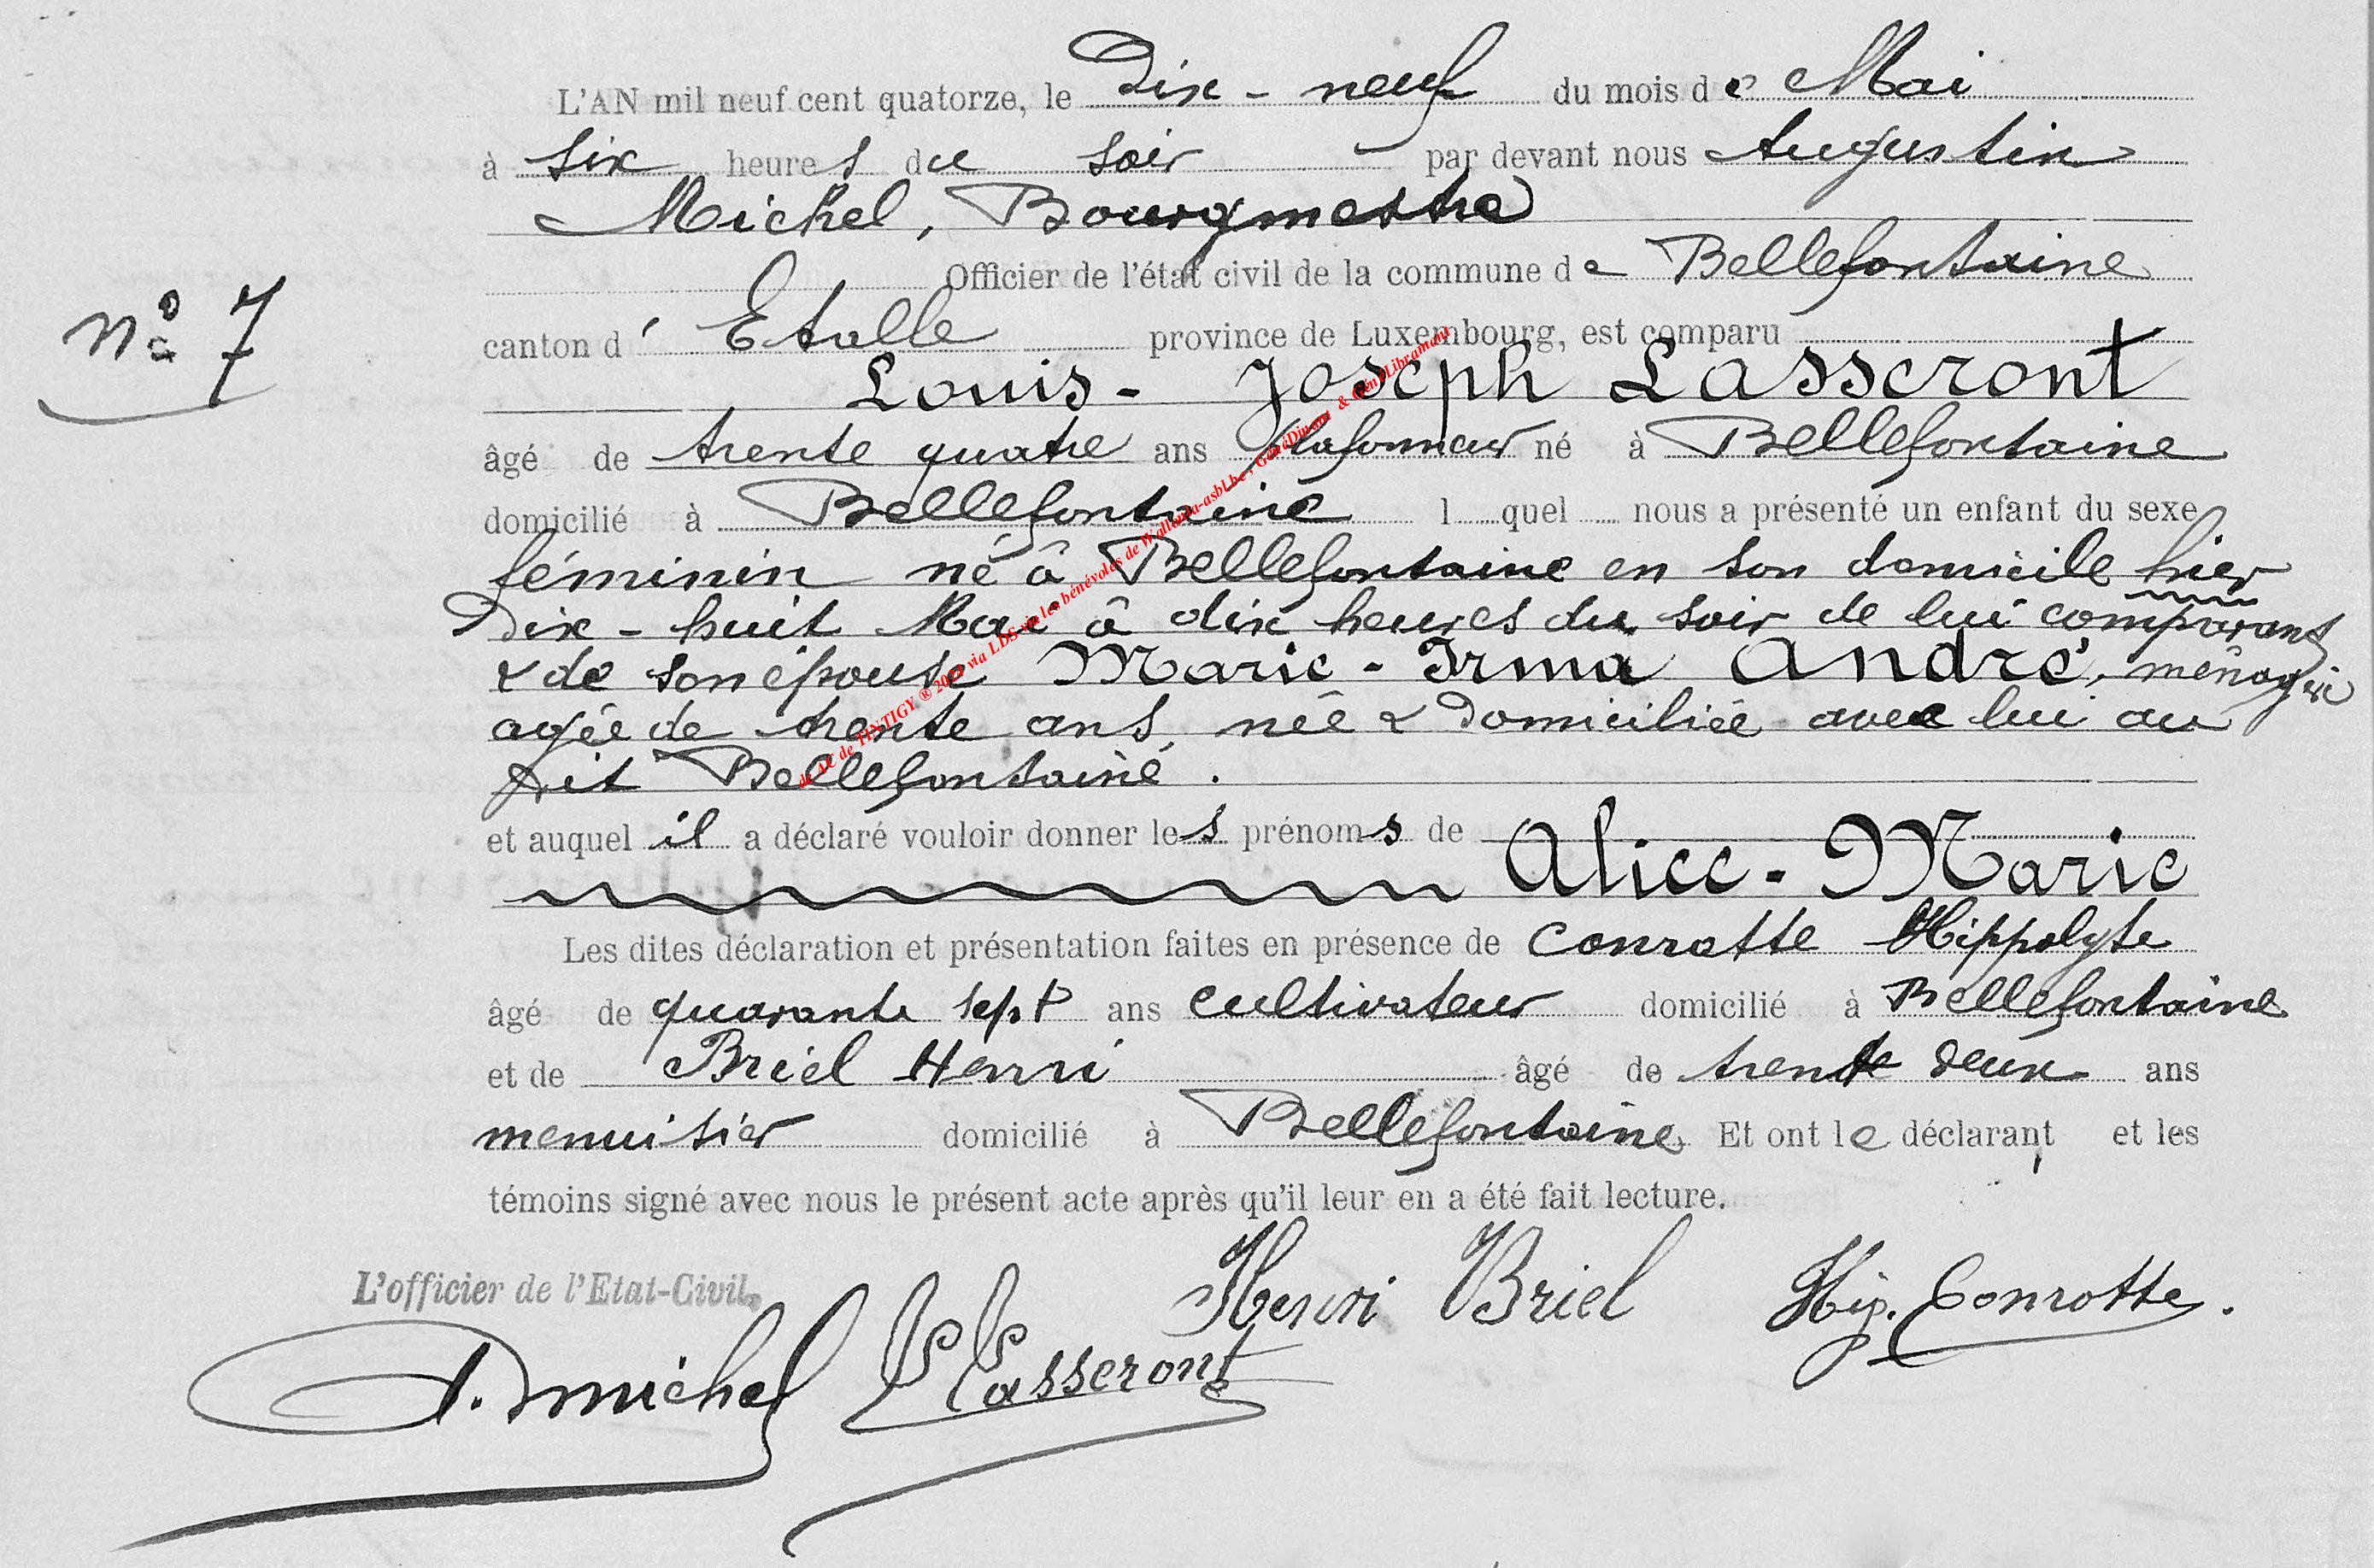 L'AN mil neuf cent quatorze, le Dix - neuf du mois de Mai
à six heures du soir par devant nous Augustin
Michel, Bourgmestre
Officier de l'état civil de la commune de Bellefontaine
N° 7
canton d' Etalle province de Luxembourg, est comparu
Louis - Joseph Lasseront
âgé de trente quatre ans plafonneur né à Bellefontaine
domicilié à Bellefontaine l quel nous a présenté un enfant du sexe
féminin né à Bellefontaine en son domicile hier
Dix - huit Mai à dix heures du soir de lui comparant
& de son épouse Marie - Irma André, ménagère
agée de trente ans, née & domiciliée avec lui au
dit Bellefontaine.
et auquel il a déclaré vouloir donner les prénoms de
Alice - Marie
Les dites déclaration et présentation faites en présence de Conrotte Hippolyte
âgé de quarante sept ans cultivateur domicilié à Bellefontaine
et de Briel Henri âgé de trente deux ans
menuisier domicilié à Bellefontaine Et ont le déclarant et les
témoins signé avec nous le présent acte après qu'il leur en a été fait lecture.
L'officier de l'Etat-Civil,
A. Michel
L Lasseront
Henri Briel
Hip. Conrotte.
de AC de TINTIGY ® 20 via LDS via les bénévoles de Wallonia-asbl.be, GénéDinant & GénéLibramont